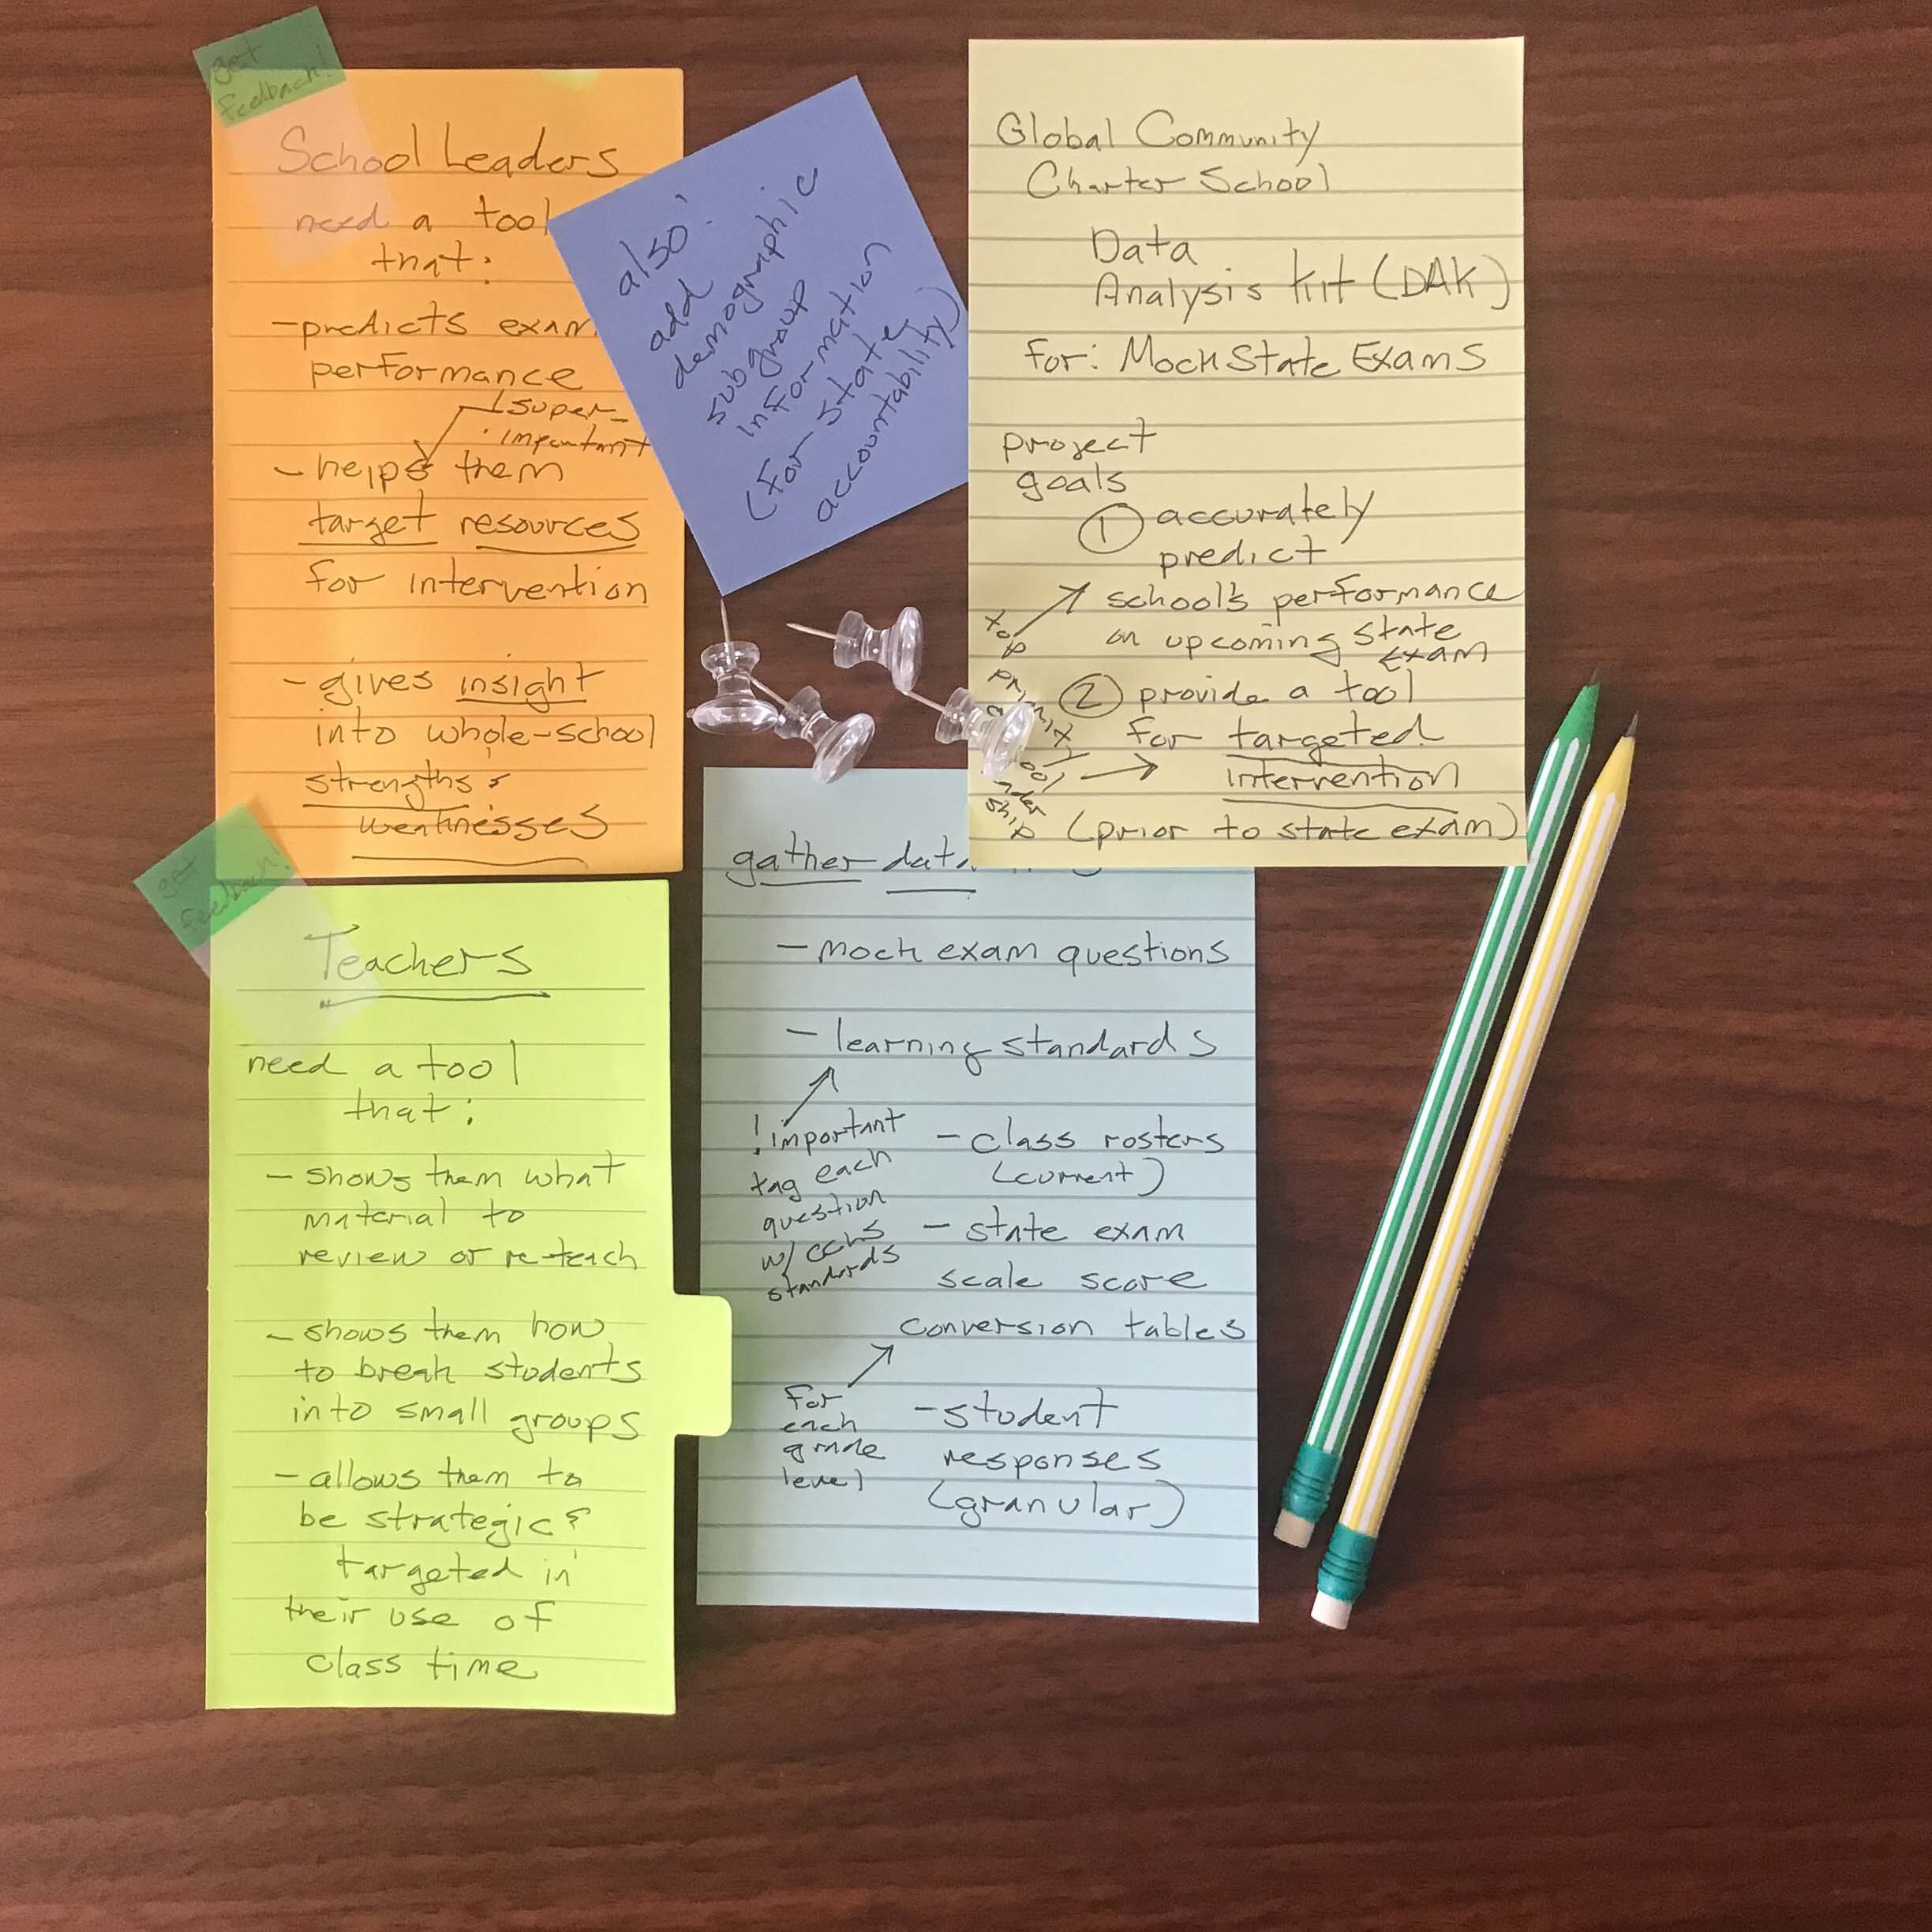 get
feedback!
School Leaders
need a tool
that:
- predicts exam
performance
super-
important
- helps them
target resources
for intervention
- gives insight
into whole-school
strengths &
weaknesses
also!
add
demographic
subgroup
information
(for state
accountability)
Global Community
Charter School
Data
Analysis Kit (DAK)
For: Mock State Exams
project
goals
① accurately
predict
school's performance
on upcoming state
exam
② provide a tool
for targeted
intervention
(prior to state exam)
top
priority
get
feedback!
Teachers
need a tool
that:
- shows them what
material to
review or re-teach
- shows them how
to break students
into small groups
- allows them to
be strategic &
targeted in
their use of
class time
gather data
- mock exam questions
- learning standards
! important
tag each
question
w/ CCLS
standards
- class rosters
(current)
- state exam
scale score
conversion tables
for
each
grade
level
- student
responses
(granular)